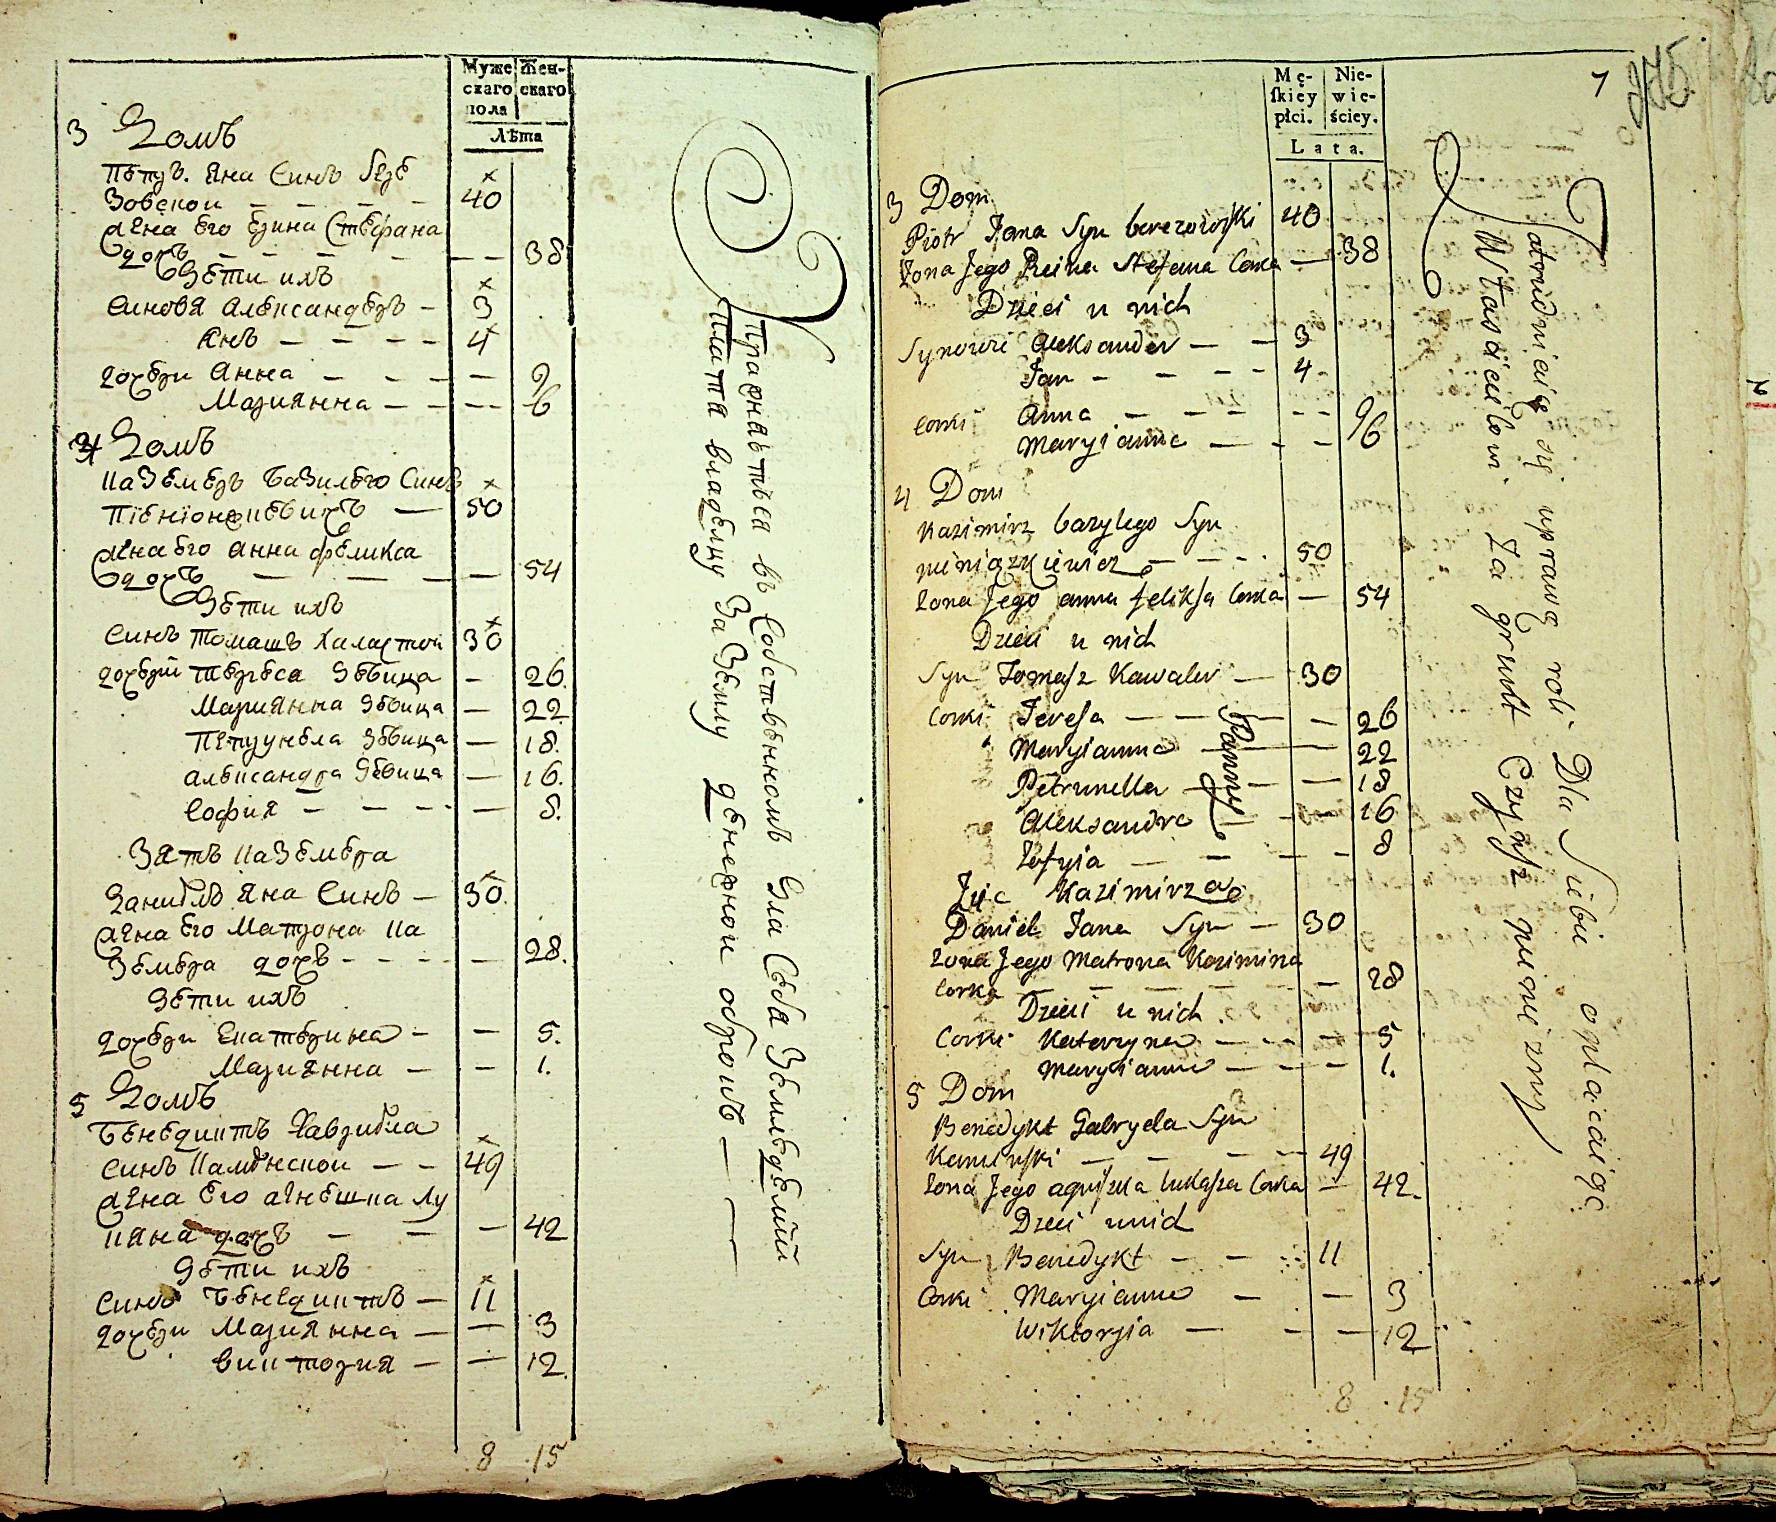 Муже
скаго
пола
Жен-
скаго
Лѣта
3 Домъ
Петръ. Яна Синъ Бере
Зовской — — — — 40
Жена Его Регина Стефана
дочь — — — — — — 38
Дѣти ихъ
Синовя Александеръ — 3
Янъ — — — — 4
дочери Анна — — — — — 9
Марианна — — — — 6
4 Домъ
Каземеръ Базилего Синъ
— 50
Жена Его Анна Феликса
дочь — — — — — 54
Дѣти ихъ
Синъ Томашъ Халастой 30
дочерй Тереса Дѣвица — 26.
Марианна Дѣвица — 22
Петрунела Дѣвица — 18.
Александра Дѣвица — 16.
София — — — — — 8.
Зять Каземера
Данилъ Яна Синъ — 30.
Жена Его Матрона Ка
Земера дочь — — — — — 28.
Дѣти ихъ
дочери Екатерина — — 5.
Марианна — — 1.
5 Домъ
Бенедиктъ Гавриела
Синъ Каминской — — 49
Жена Его Агнешка Лу
каша дочь — — — 42
Дѣти ихъ
Синъ Бенедиктъ — 11
дочери Марианна — — 3
Виктория — — 12.
8 15
Упражняться въ Собственномъ для Себя Земледелий
Платя владелцу За Землю денежной оброкъ —
Mę-
ſkiey
płci.
Nie-
wie-
ściey.
Lata.
7
3 Dom
Piotr Jana Syn berezowſki 40
Zona Jego Reina Stefana Corka — 38
Dzieci u nich
Synowie Alekſander — — 3
Jan — — — — 4
Corki Anna — — — — — 9
Maryianna — — — 6
4 Dom
Kazimirz bazylego Syn
pieniązkiewicz — — — 50
Zona Jego anna felikſa Corka — 54
Dzieci u nich
Syn Tomaſz Kawaler — 30
Corki Tereſa — — — — 26
Maryianna — — 22
Petrunella — — — 18
Alekſandra — — — 16
Zofyia — — — — 8
Panny
Zięc Kazimirza
Daniel Jana Syn — 30
Zona Jego Matrona Kazimirza
Corka — — — — — — 28
Dzieci u nich
Corki Katarzyna — — — — 5
Maryianna — — — 1.
5 Dom
Benedykt Gabryela Syn
Kaminſki — — — — 49
Zona Jego agniſzka łukaſza Corka — 42.
Dzieci unich
Syn Benedykt — — — 11
Corki Maryianna — — 3
Wiktoryia — — — 12
8 15
Zatrudnieią się uprawą roli Dla Siebie opłacaiąc
Właścicielowi Za grunt Czynſz pieniężny